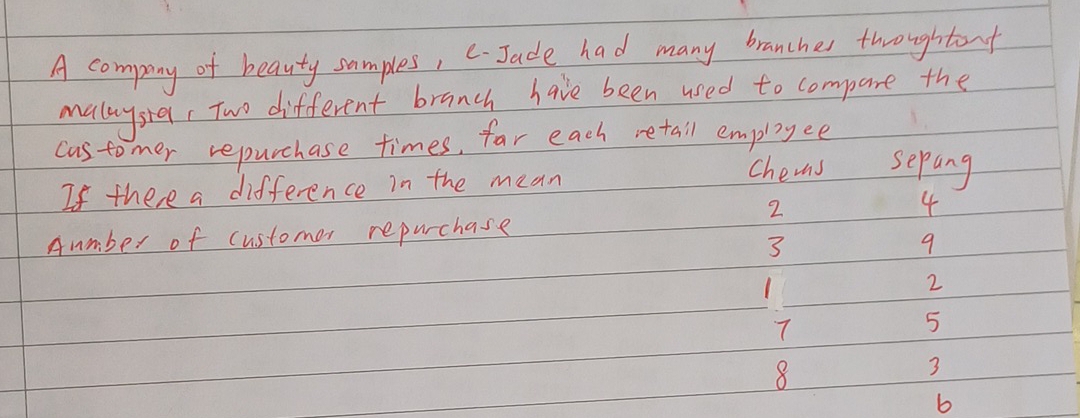 A company of beauty samples, e-Jade had many branches throughtout
malaysia, Two different branch have been used to compare the
customer repurchase times, for each retail employee
If there a difference in the mean Cheras Sepang
number of customer repurchase 2 4
3 9
1 2
7 5
8 3
6